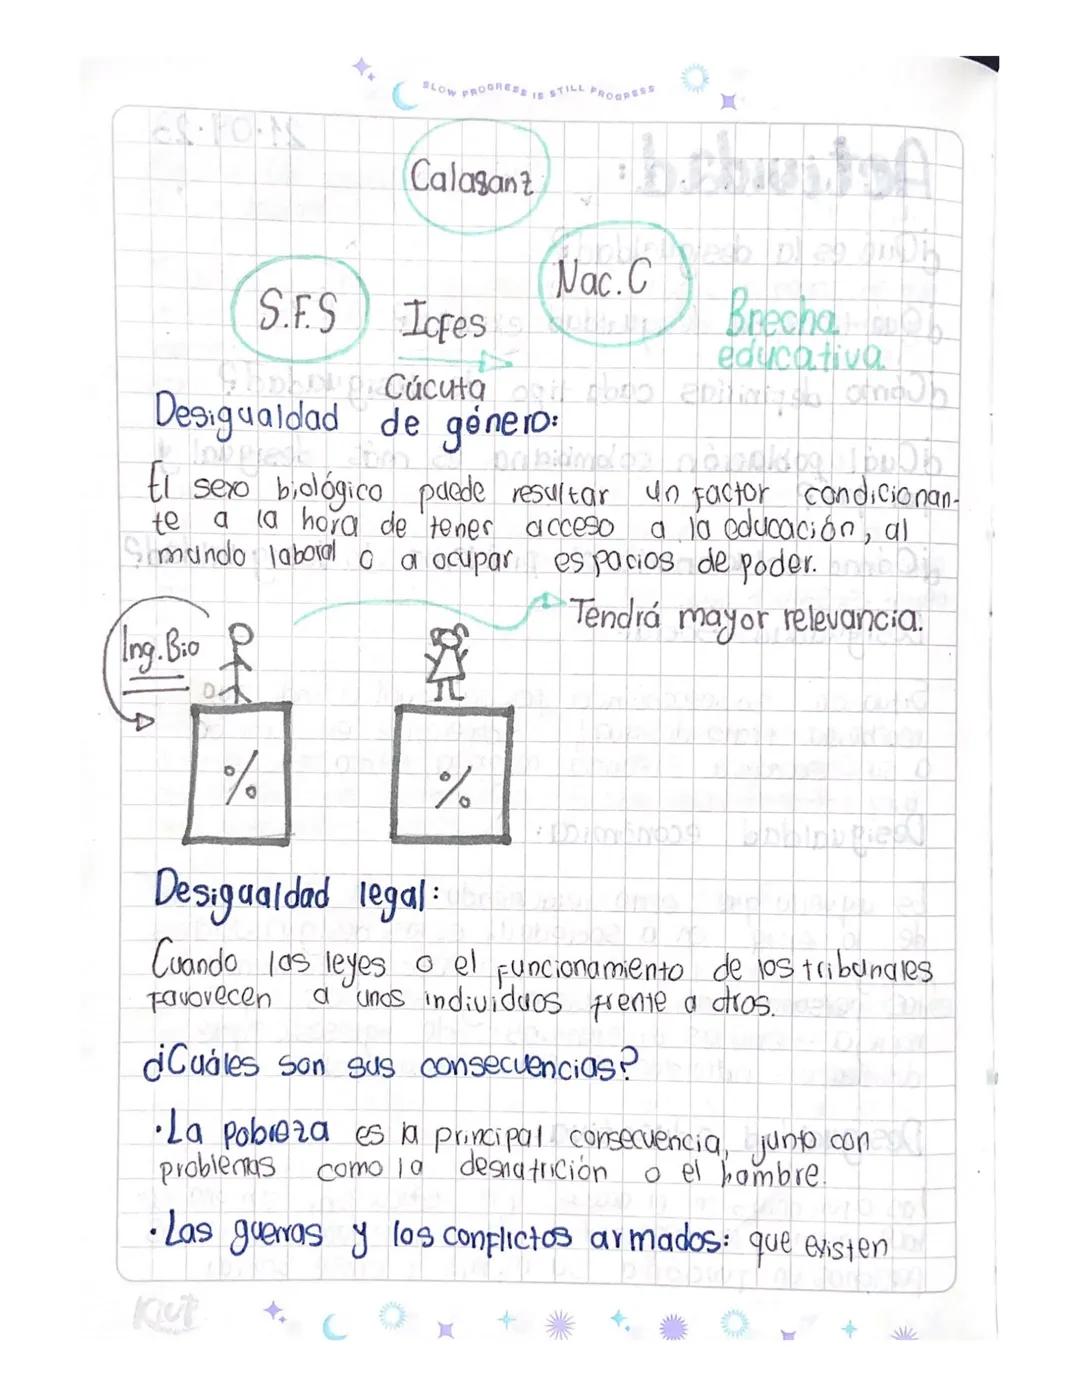 SLOW PROGRESS IS STILL PROGRESS
Calasanz
Nac.C
S.F.S
Icfes
Cúcuta
Brecha
educativa
Desigualdad de género:
El sexo biológico puede resultar un factor condicionan-
te a la hora de tener acceso a la educación, al
mundo laboral o a ocupar espacios de poder.
Tendrá mayor relevancia.
Ing. Bio
%
%
Desigualdad legal:
Cuando las leyes o el funcionamiento de los tribunales
favorecen a unos individuos frente a otros.
¿Cuáles son sus consecuencias?
·La pobreza es la principal consecuencia, junto con
problemas como la desnutrición o el hambre.
·Las guerras y los conflictos armados: que existen
Kiut